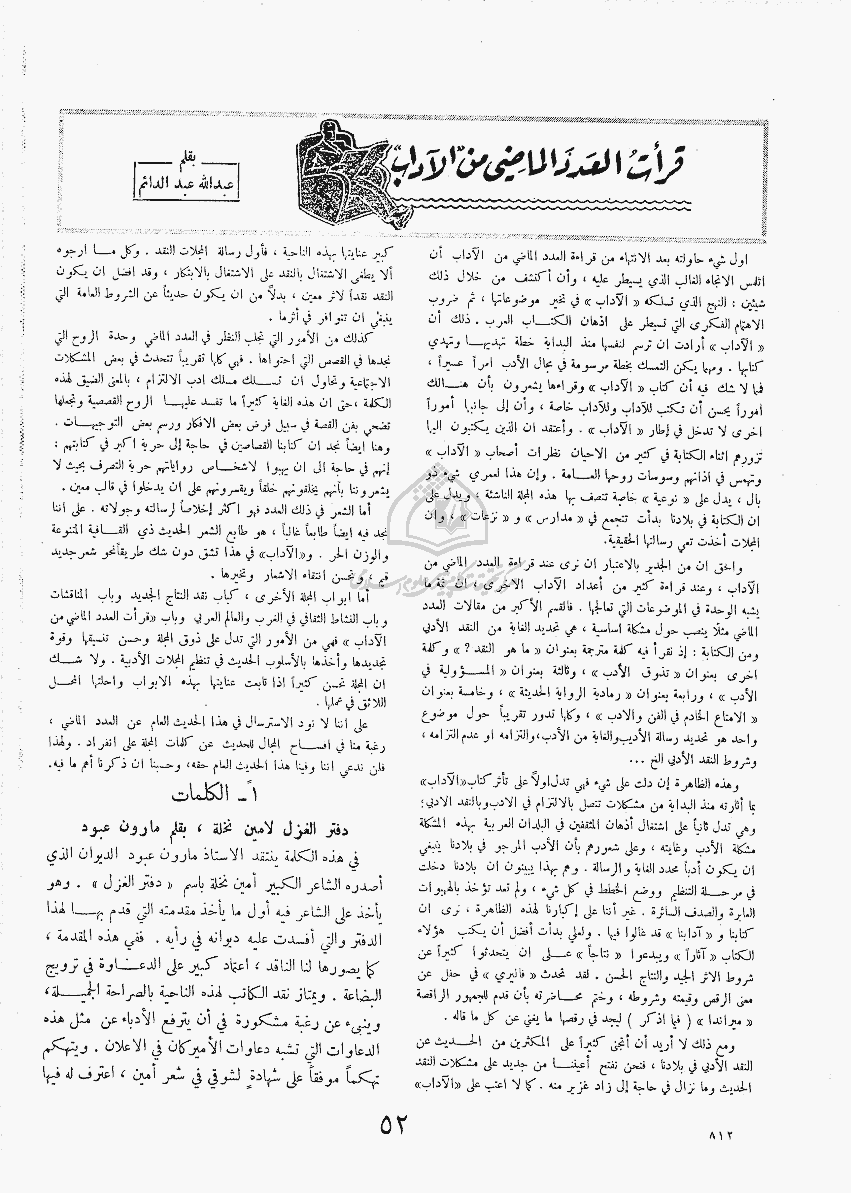 قرأت العدد الماضي من "الآداب"
بقلم
عبدالله عبد الدائم
اول شيء حاولته بعد الانتهاء من قراءة العدد الماضي من الآداب أن
اتلمس الاتجاه الغالب الذي يسيطر عليه ، وأن أكتشف من خلال ذلك
شيئين : النهج الذي تسلكه « الآداب » في تخير موضوعاتها ، ثم ضروب
الاهتمام الفكري التي تسيطر على اذهان الكتاب العرب . ذلك أن
« الآداب » أرادت ان ترسم لنفسها منذ البداية خطة تهديها وتهدي
كتابها . ومهما يكن التمسك بخطة مرسومة في مجال الأدب امراً عسيراً ،
فما لا شك فيه أن كتاب « الآداب » وقراءها يشعرون بأن هنالك
أموراً يحسن أن تكتب للآداب وللآداب خاصة ، وأن إلى جانبها أموراً
اخرى لا تدخل في إطار « الآداب » . وأعتقد ان الذين يكتبون اليها
تزورهم اثناء الكتابة في كثير من الاحيان نظرات أصحاب « الآداب »
وتهمس في اذانهم وسوسات روحها العامة . وإن هذا لعمري شيء ذو
بال ، يدل على « نوعية » خاصة تتصف بها هذه المجلة الناشئة ، ويدل على
ان الكتابة في بلادنا بدأت تتجمع في « مدارس » و « نزعات » ، وان
المجلات أخذت تعي رسالتها الحقيقية.
والحق ان من الجدير بالاعتبار ان نرى عند قراءة العدد الماضي من
الآداب ، وعند قراءة كثير من أعداد الآداب الاخرى ، ان ثمة ما
يشبه الوحدة في الموضوعات التي تعالجها . فالقسم الأكبر من مقالات العدد
الماضي مثلًا ينصب حول مشكلة اساسية ، هي تحديد الغاية من النقد الأدبي
ومن الكتابة : إذ نقرأ فيه كلمة مترجمة بعنوان « ما هو النقد ? » وكلمة
اخرى بعنوان « تذوق الأدب » ، وثالثة بعنوان « المسؤولية في
الأدب » ، ورابعة بعنوان « رمادية الرواية الحديثة » ، وخامسة بعنوان
« الامتاع الخادم في الفن والادب » ، وكلها تدور تقريباً حول موضوع
واحد هو تحديد رسالة الأديب والغاية من الأدب، والتزامه او عدم التزامه ،
وشروط النقد الأدبي الخ ...
وهذه الظاهرة إن دلت على شيء فهي تدل اولًا على تأثر كتاب «الآداب»
بما أثارته منذ البداية من مشكلات تتصل بالالتزام في الادب وبالنقد الادبي؛
وهي تدل ثانياً على اشتغال أذهان المثقفين في البلدان العربية بهذه المشكلة
مشكلة الأدب وغايته ، وعلى شعورهم بأن الأدب المرجو في بلادنا ينبغي
ان يكون أدباً محدد الغاية والرسالة . وهم بهذا يبينون ان بلادنا دخلت
في مرحلة التنظيم ووضع الخطط في كل شيء ، ولم تعد تؤخذ بالهبوات
العابرة والصدف السائرة . غير أننا على إكبارنا لهذه الظاهرة ، نرى ان
كتابنا و « آدابنا » قد غالوا فيها . ولعلي بدأت أفضل أن يكتب هؤلاء
الكتاب « آثاراً » ويبدعوا « نتاجاً » على ان يتحدثوا كثيراً عن
شروط الاثر الجيد والنتاج الحسن . لقد تحدث « فاليري » في حفل عن
معنى الرقص وقيمته وشروطه ، وختم محاضرته بأن قدم للجمهور الراقصة
« ميراندا » ( فيما اذكر ) ليجد في رقصها ما يغني عن كل ما قاله .
ومع ذلك لا أريد أن أتجنى كثيراً على المكثرين من الحديث عن
النقد الأدبي في بلادنا ، فنحن نفتح أعيننا من جديد على مشكلات النقد
الحديث وما نزال في حاجة إلى زاد غزير منه . كما لا اعتب على «الآداب»
كبير عنايتها بهذه الناحية ، فأول رسالة المجلات النقد . وكل ما ارجوه
ألا يطغى الاشتغال بالنقد على الاشتغال بالابتكار ، وقد افضل ان يكون
النقد نقداً لاثر معين ، بدلًا من ان يكون حديثاً عن الشروط العامة التي
ينبغي ان تتوافر في أثر ما .
كذلك من الأمور التي تجلب النظر في العدد الماضي وحدة الروح التي
نجدها في القصص التي احتواها . فهي كلها تقريباً تتحدث في بعض المشكلات
الاجتماعية وتحاول ان تسلك مسلك ادب الالتزام ، بالمعنى الضيق لهذه
الكلمة ، حتى ان هذه الغاية كثيراً ما تفسد عليها الروح القصصية وتجعلها
تضحي بفن القصة في سبيل فرض بعض الافكار ورسم بعض التوجيهات .
وهنا ايضاً نجد ان كتابنا القصاصين في حاجة إلى حرية اكبر في كتابتهم :
إنهم في حاجة الى ان يهبوا لاشخاص رواياتهم حرية التصرف بحيث لا
يشعروننا بأنهم يخلقونهم خلقاً ويقسرونهم على ان يدخلوا في قالب معين .
أما الشعر في ذلك العدد فهو اكثر إخلاصاً لرسالته وجولاته . على اننا
نجد فيه ايضاً طابعاً غالباً ، هو طابع الشعر الحديث ذي القافية المتنوعة
والوزن الحر . و«الآداب» في هذا تشق دون شك طريقاً نحو شعر جديد
قيم ، وتحسن انتقاء الاشعار وتخيرها .
أما ابواب المجلة الأخرى ، كباب نقد النتاج الجديد وباب المناقشات
وباب النشاط الثقافي في الغرب والعالم العربي وباب «قرأت العدد الماضي من
الآداب » فهي من الأمور التي تدل على ذوق المجلة وحسن تنسيقها وقوة
تجديدها وأخذها بالأسلوب الحديث في تنظيم المجلات الأدبية . ولا شك
ان المجلة تحسن كثيراً اذا تابعت عنايتها بهذه الابواب واحلتها المحل
اللائق في عملها .
على اننا لا نود الاسترسال في هذا الحديث العام عن العدد الماضي ،
رغبة منا في افساح المجال للحديث عن كلمات المجلة على انفراد . ولهذا
فلن ندعي اننا وفينا هذا الحديث العام حقه، وحسبنا ان ذكرنا أهم ما فيه.
١ً - الكلمات
دفتر الغزل لامين نخلة ، بقلم مارون عبود
في هذه الكلمة ينتقد الاستاذ مارون عبود الديوان الذي
أصدره الشاعر الكبير أمين نخلة باسم « دفتر الغزل » . وهو
يأخذ على الشاعر فيه أول ما يأخذ مقدمته التي قدم بها لهذا
الدفتر والتي أفسدت عليه ديوانه في رأيه . ففي هذه المقدمة ،
كما يصورها لنا الناقد ، اعتماد كبير على الدعاوة في ترويج
البضاعة . ويمتاز نقد الكاتب لهذه الناحية بالصراحة الجميلة،
وينبىء عن رغبة مشكورة في أن يترفع الأدباء عن مثل هذه
الدعاوات التي تشبه دعاوات الأميركان في الاعلان . ويتهكم
تهكماً موفقاً على شهادةٍ لشوقي في شعر أمين ، اعترف له فيها
٥٢
٨١٢